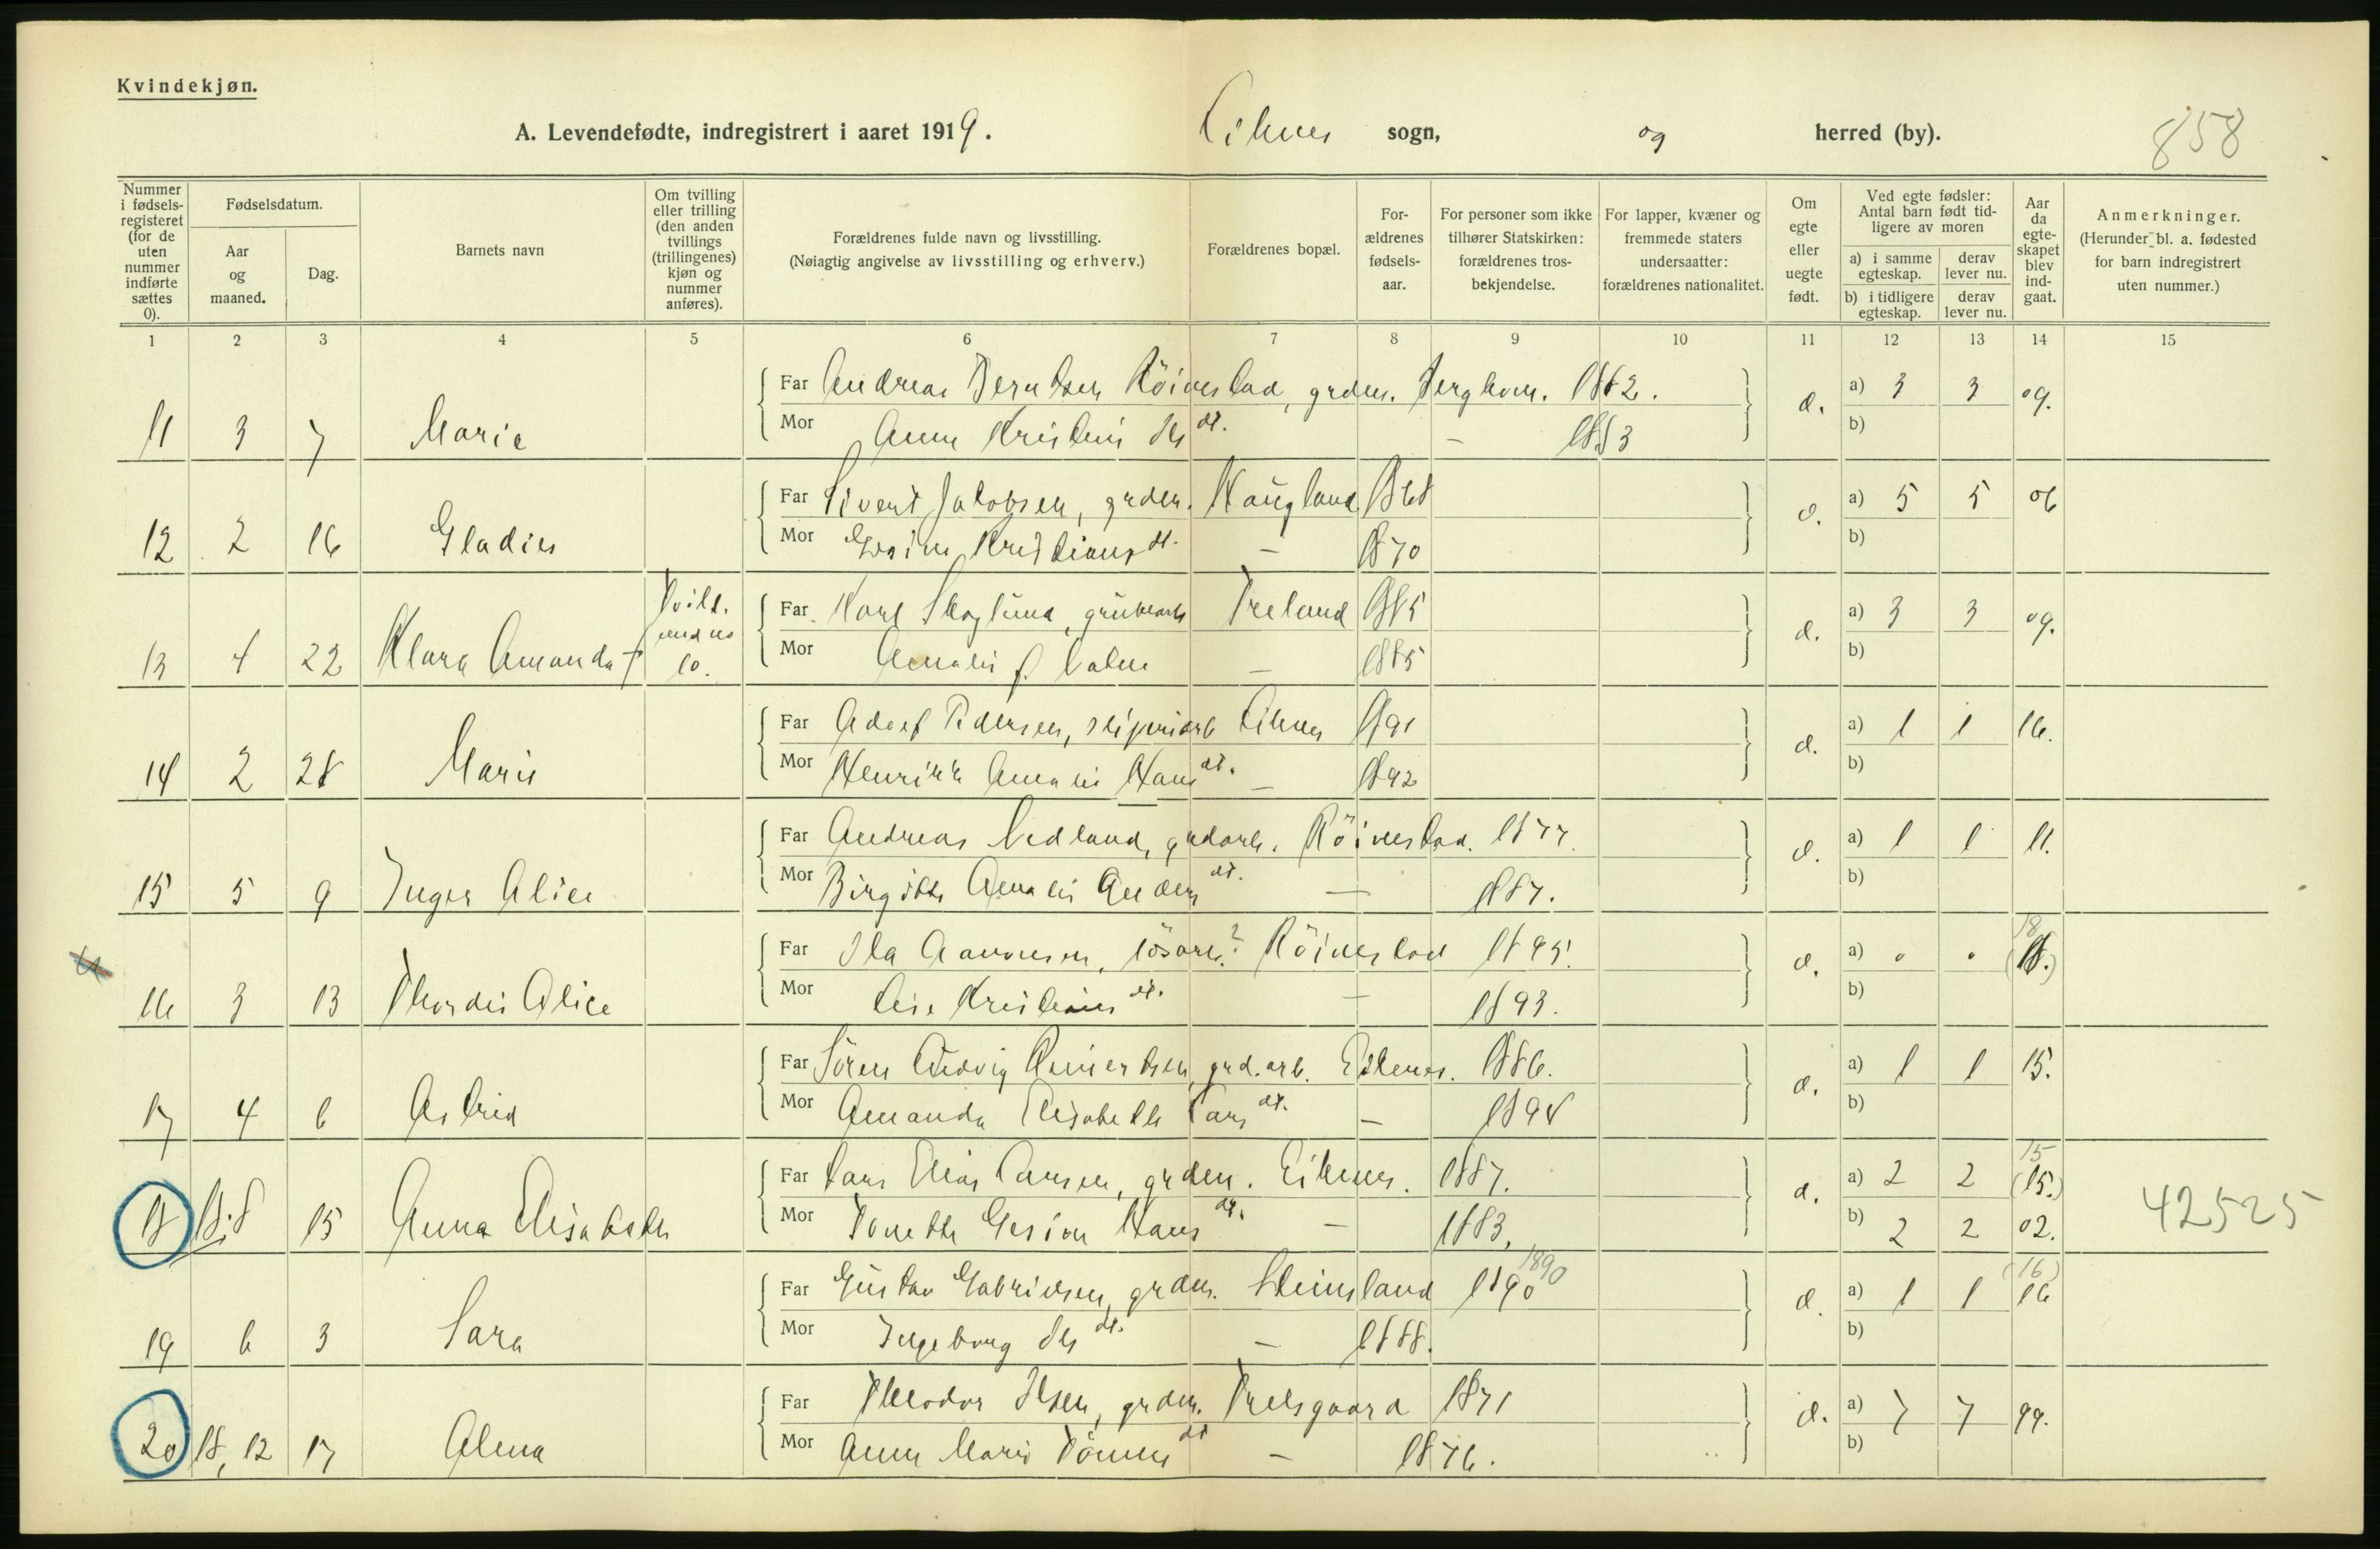 Kvindekjøn.
A. Levendefødte, indregistrert i aaret 1919. sogn, og herred (by). 858
Nummer i fødselsregisteret (for de uten nummer indførte sættes 0).
Fødselsdatum.
Aar og maaned.
Dag.
Barnets navn
Om tvilling eller trilling (den anden tvillings (trillingenes) kjøn og nummer anføres).
Forældrenes fulde navn og livsstilling.
(Nøiagtig angivelse av livsstilling og erhverv.)
Forældrenes bopæl.
Forældrenes fødselsaar.
For personer som ikke tilhører Statskirken: forældrenes trosbekjendelse.
For lapper, kvæner og fremmede staters undersaatter: forældrenes nationalitet.
Om egte eller uegte født.
Ved egte fødsler: Antal barn født tidligere av moren
a) i samme egteskap.
derav lever nu.
b) i tidligere egteskap.
derav lever nu.
Aar da egteskapet blev indgaat.
Anmerkninger.
(Herunder bl. a. fødested for barn indregistrert uten nummer.)
1 2 3 4 5 6 7 8 9 10 11 12 13 14 15
Far Andreas Berntsen Röinestad, grdm. a) 3 3 09.
11 3 7 Marie Mor b)
Far Sivert Jakobsen, grdm. Haugland 1868 a) 5 5 06
12 2 16 Gladies Mor – 1870 b)
Far Karl Skoglund, Treland 1885 a) 3 3 09.
13 4 22 Klara Amanda † 10. Mor Amalie f. – 1885 b)
Far Adolf Pedersen, 1891 a) 1 1 16.
14 2 28 Marie Mor Amalie Hans dt. – 1892 b)
Far Andreas Nedland, Röinestad. 1877. a) 1 1 11.
15 5 9 Inger Alice Mor Birgitte Amalie Anders dt. – 1887. b)
Far Röinestad 1895. a) 18 (18.)
16 3 13 Thordis Alice Mor dt. – 1893. b)
Far Sören Ludvig grd.arb. 1886. a) 1 1 15.
17 4 6 Astrid Mor Amanda Elisabeth Lars dt. – b)
Far Lars Elias Larsen, grdm. 1887. a) 2 2 15 (15.)
18 18.8 15 Anna Elisabeth Mor Tonette Gesine Hans dt. – 1883. b) 2 2 02. 42525
Far Gustav Gabrielsen, grdm. Steinsland 1890 1890 a) 1 1 (16) 16
19 6 3 Sara Mor Ingeborg dt. – 1888. b)
Far Theodor Olsen, grdm. Trelsgaard 1871 a) 7 7 99.
20 18, 12 17 Alma Mor Anne Marie dt – 1876. b)